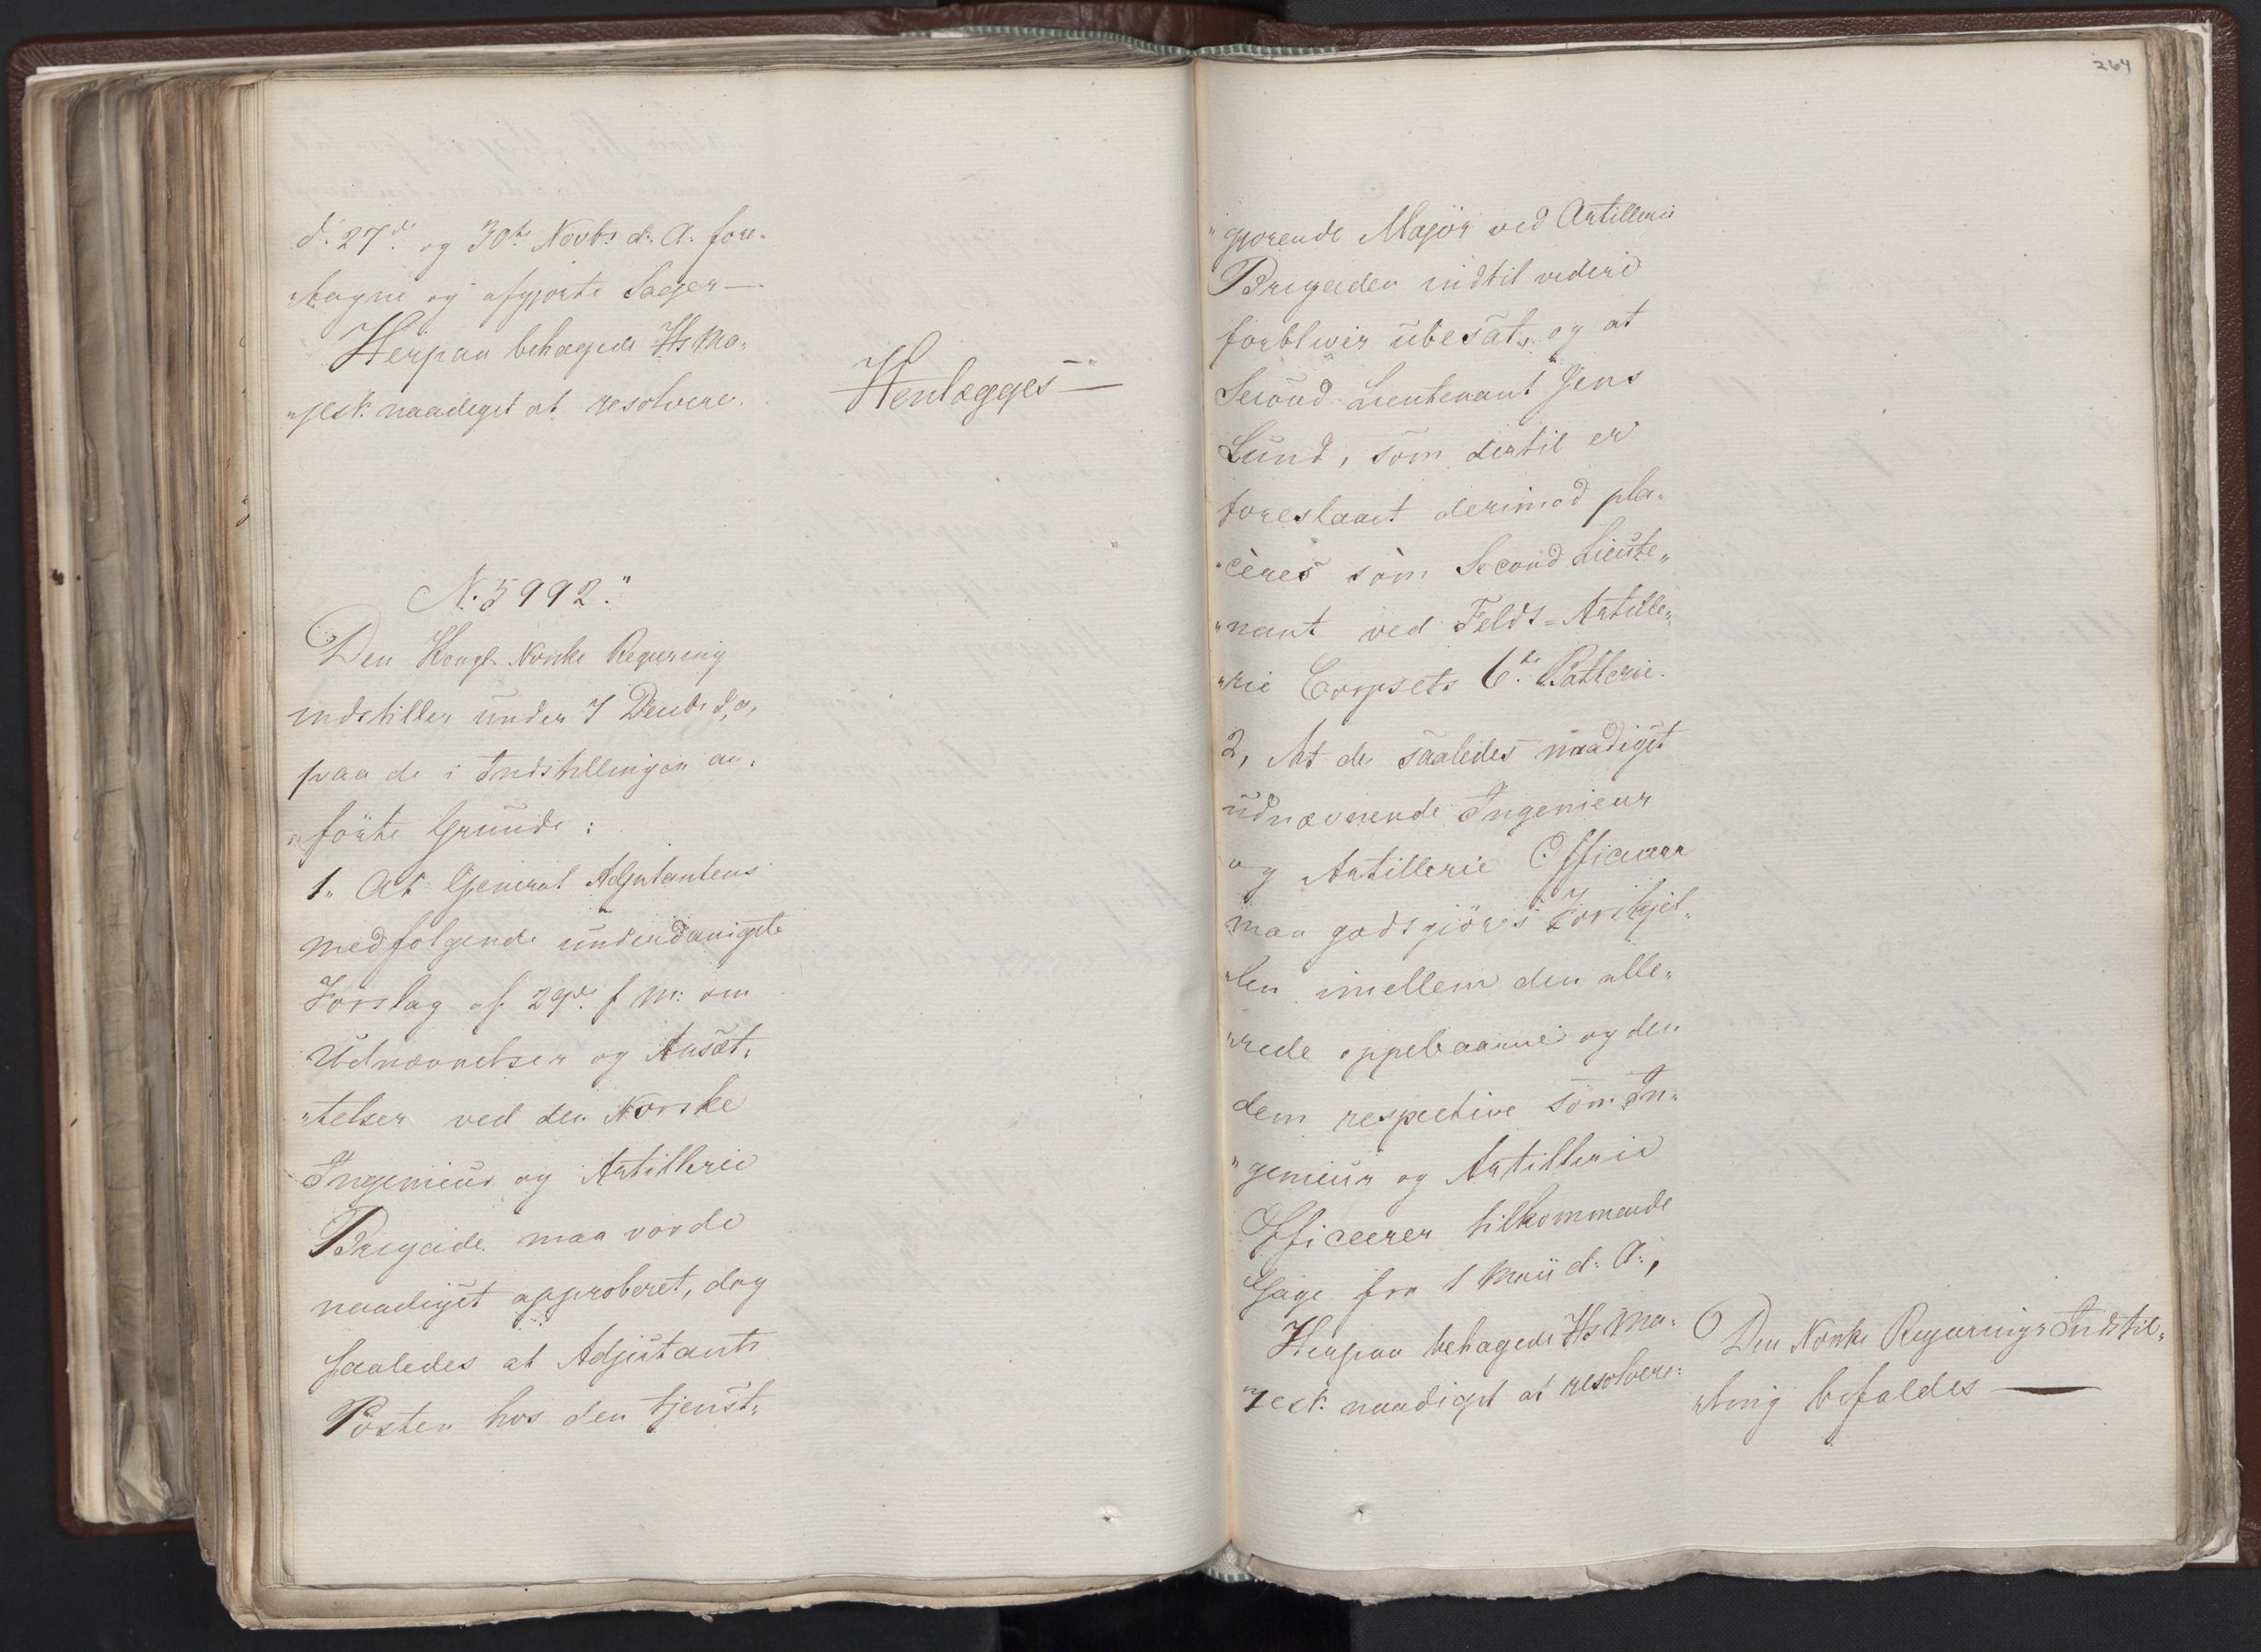 d. 27de og 30te Novbr d. A. fore-
"tagne og afgjorte Sager —
Herpaa behagede Hs Ma-
"jest. naadigst at resolvere.
Henlægges —
N. 5992."
Den Kongl. Norske Regjering
indstiller under 7 Decbr d. a.
paa de i Indstillingen an-
"förte Grunde:
1. At General Adjutantens
medfølgende underdanigste
Forslag af 29de f. M. om
Udnævnelser og Ansæt-
"telser ved den Norske
Ingenieur og Artillerie
Brigade maa vorde
naadigst approberet, dog
saaledes at Adjutant
Posten hos den tjenst-
264
"gjørende Major ved Artillerie
Brigaden indtil videre
forbliver ubesat, og at
Second Lieutenant Jens
Lund, som dertil er
foreslaaet derimod pla-
"ceres som Second Lieute-
"nant ved Feldt-Artille-
"rie Corpsets 6te Batterie.
2, At de saaledes naadigst
udnævnende Ingenieur
og Artillerie Officierer
maa godtgjöres Forskjel-
"len imellem den alle-
"rede oppebaarne og den
dem respective som In-
"genieur og Artillerie
Officierer tilkommende
Gage fra 1 Maii d. A.,
Herpaa behagede Hs Ma-
"jest. naadigst at resolvere:
Den Norske Regjerings Indstil-
"ling bifaldes —